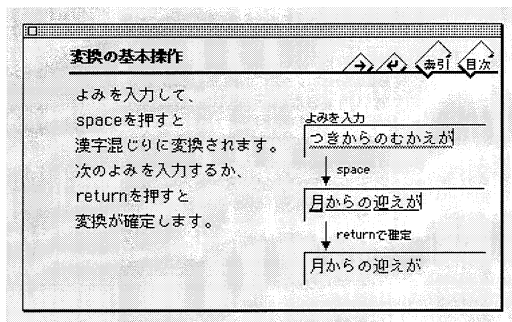 変換の基本操作
索引
目次
よみを入力して、
spaceを押すと
漢字混じりに変換されます。
次のよみを入力するか、
returnを押すと
変換が確定します。
よみを入力
つきからのむかえが
space
月からの迎えが
returnで確定
月からの迎えが